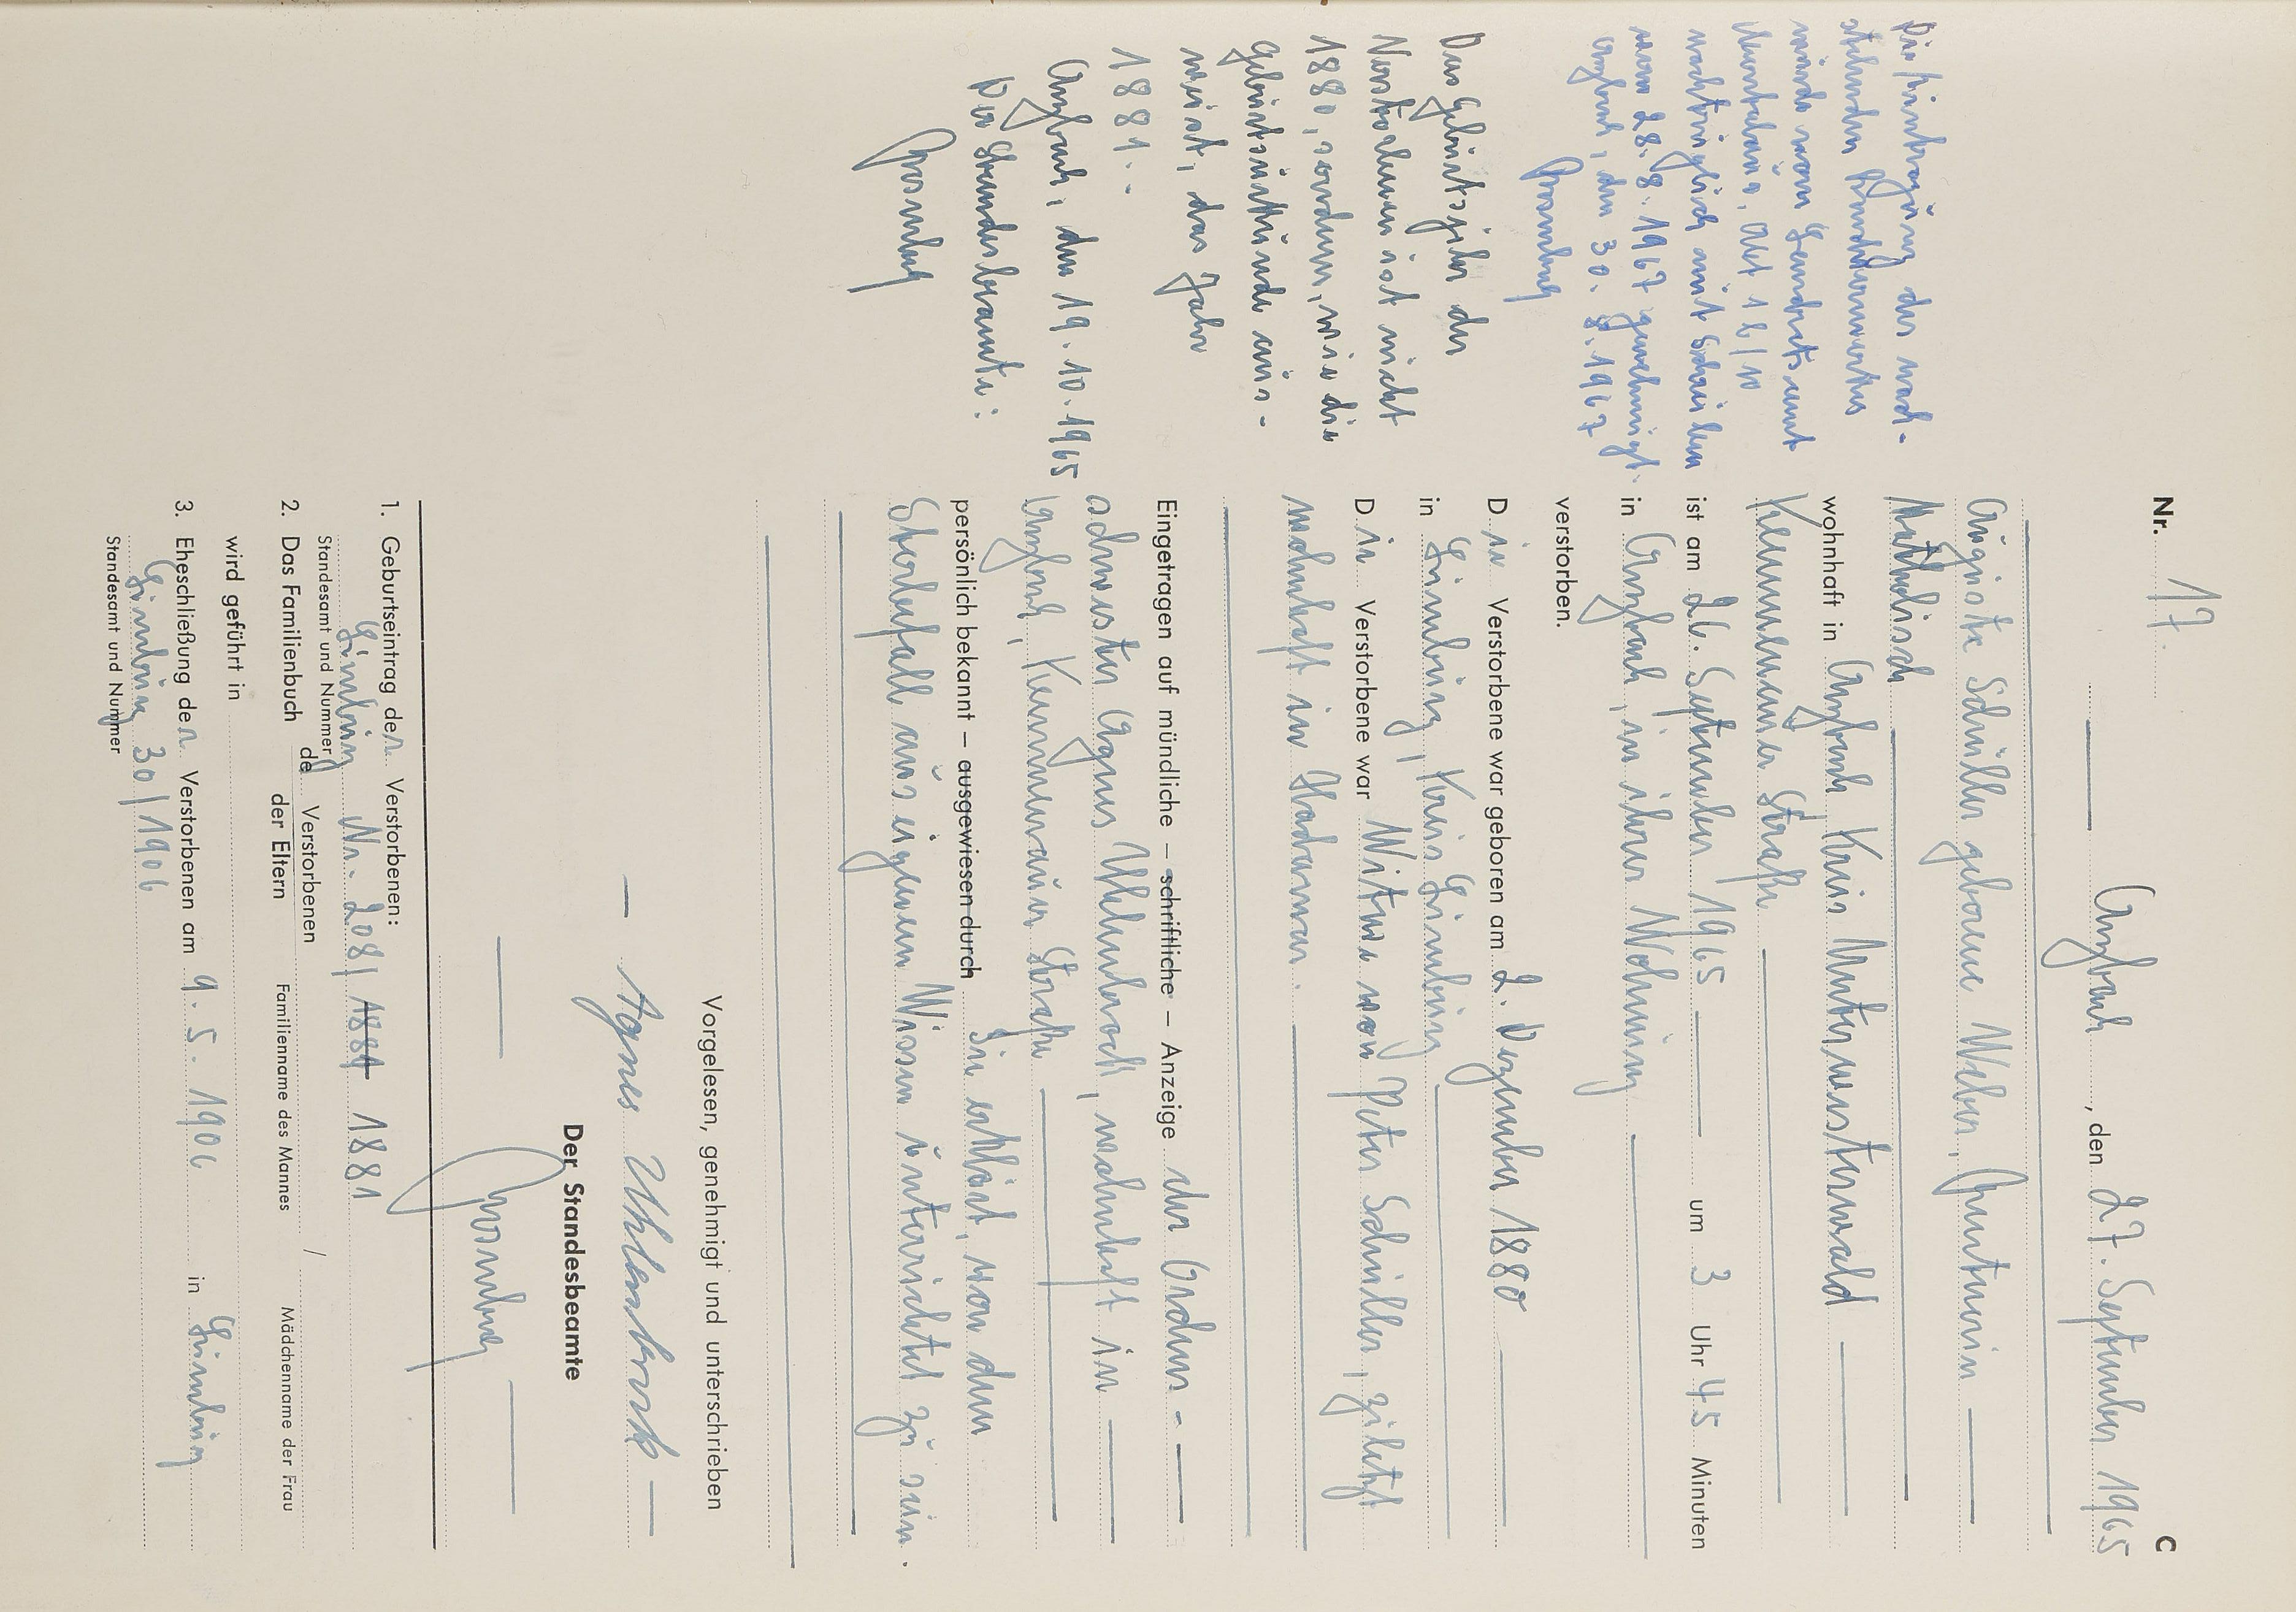 Nr. 17
C
Arzbach, den 27. September 1965
Auguste Schiller geborene Weber, Rentnerin
katholisch
wohnhaft in Arzbach Kreis Unterwesterwald
Kemmenauer Straße
ist am 26. September 1965 um 3 Uhr 45 Minuten
in Arzbach, in ihrer Wohnung
verstorben.
Die Verstorbene war geboren am 2. Dezember 1880
in Limburg, Kreis Limburg
Die Verstorbene war Witwe von Peter Schiller, zuletzt
wohnhaft in Hadamar.
Eingetragen auf mündliche – schriftliche – Anzeige der Ordens-
schwester Agnes Uhlenbrock, wohnhaft in
Arzbach, Kemmenauer Straße
persönlich bekannt – ausgewiesen durch Sie erklärt, von dem
Sterbefall aus eigenem Wissen unterrichtet zu sein.
Vorgelesen, genehmigt und unterschrieben
Agnes Uhlenbrock
Der Standesbeamte
1. Geburtseintrag der Verstorbenen:
Limburg Nr. 208/ 1884 1881
Standesamt und Nummer
2. Das Familienbuch de Verstorbenen
der Eltern
Familienname des Mannes / Mädchenname der Frau
wird geführt in
3. Eheschließung der Verstorbenen am 9. 5. 1906 in Limburg
Limburg 30/1906
Standesamt und Nummer
Die Eintragung des nach-
stehenden Randvermerkes
wurde vom Landratsamt
Montabaur, Abt 16/10
nachträglich mit Schreiben
vom 28.8.1967 genehmigt.
Arzbach, den 30. 8. 1967
Das Geburtsjahr der
Verstorbenen ist nicht
1880, sondern, wie die
Geburtsurkunde aus-
weist, das Jahr
1881.-
Arzbach, den 19.10.1965
Der Standesbeamte: